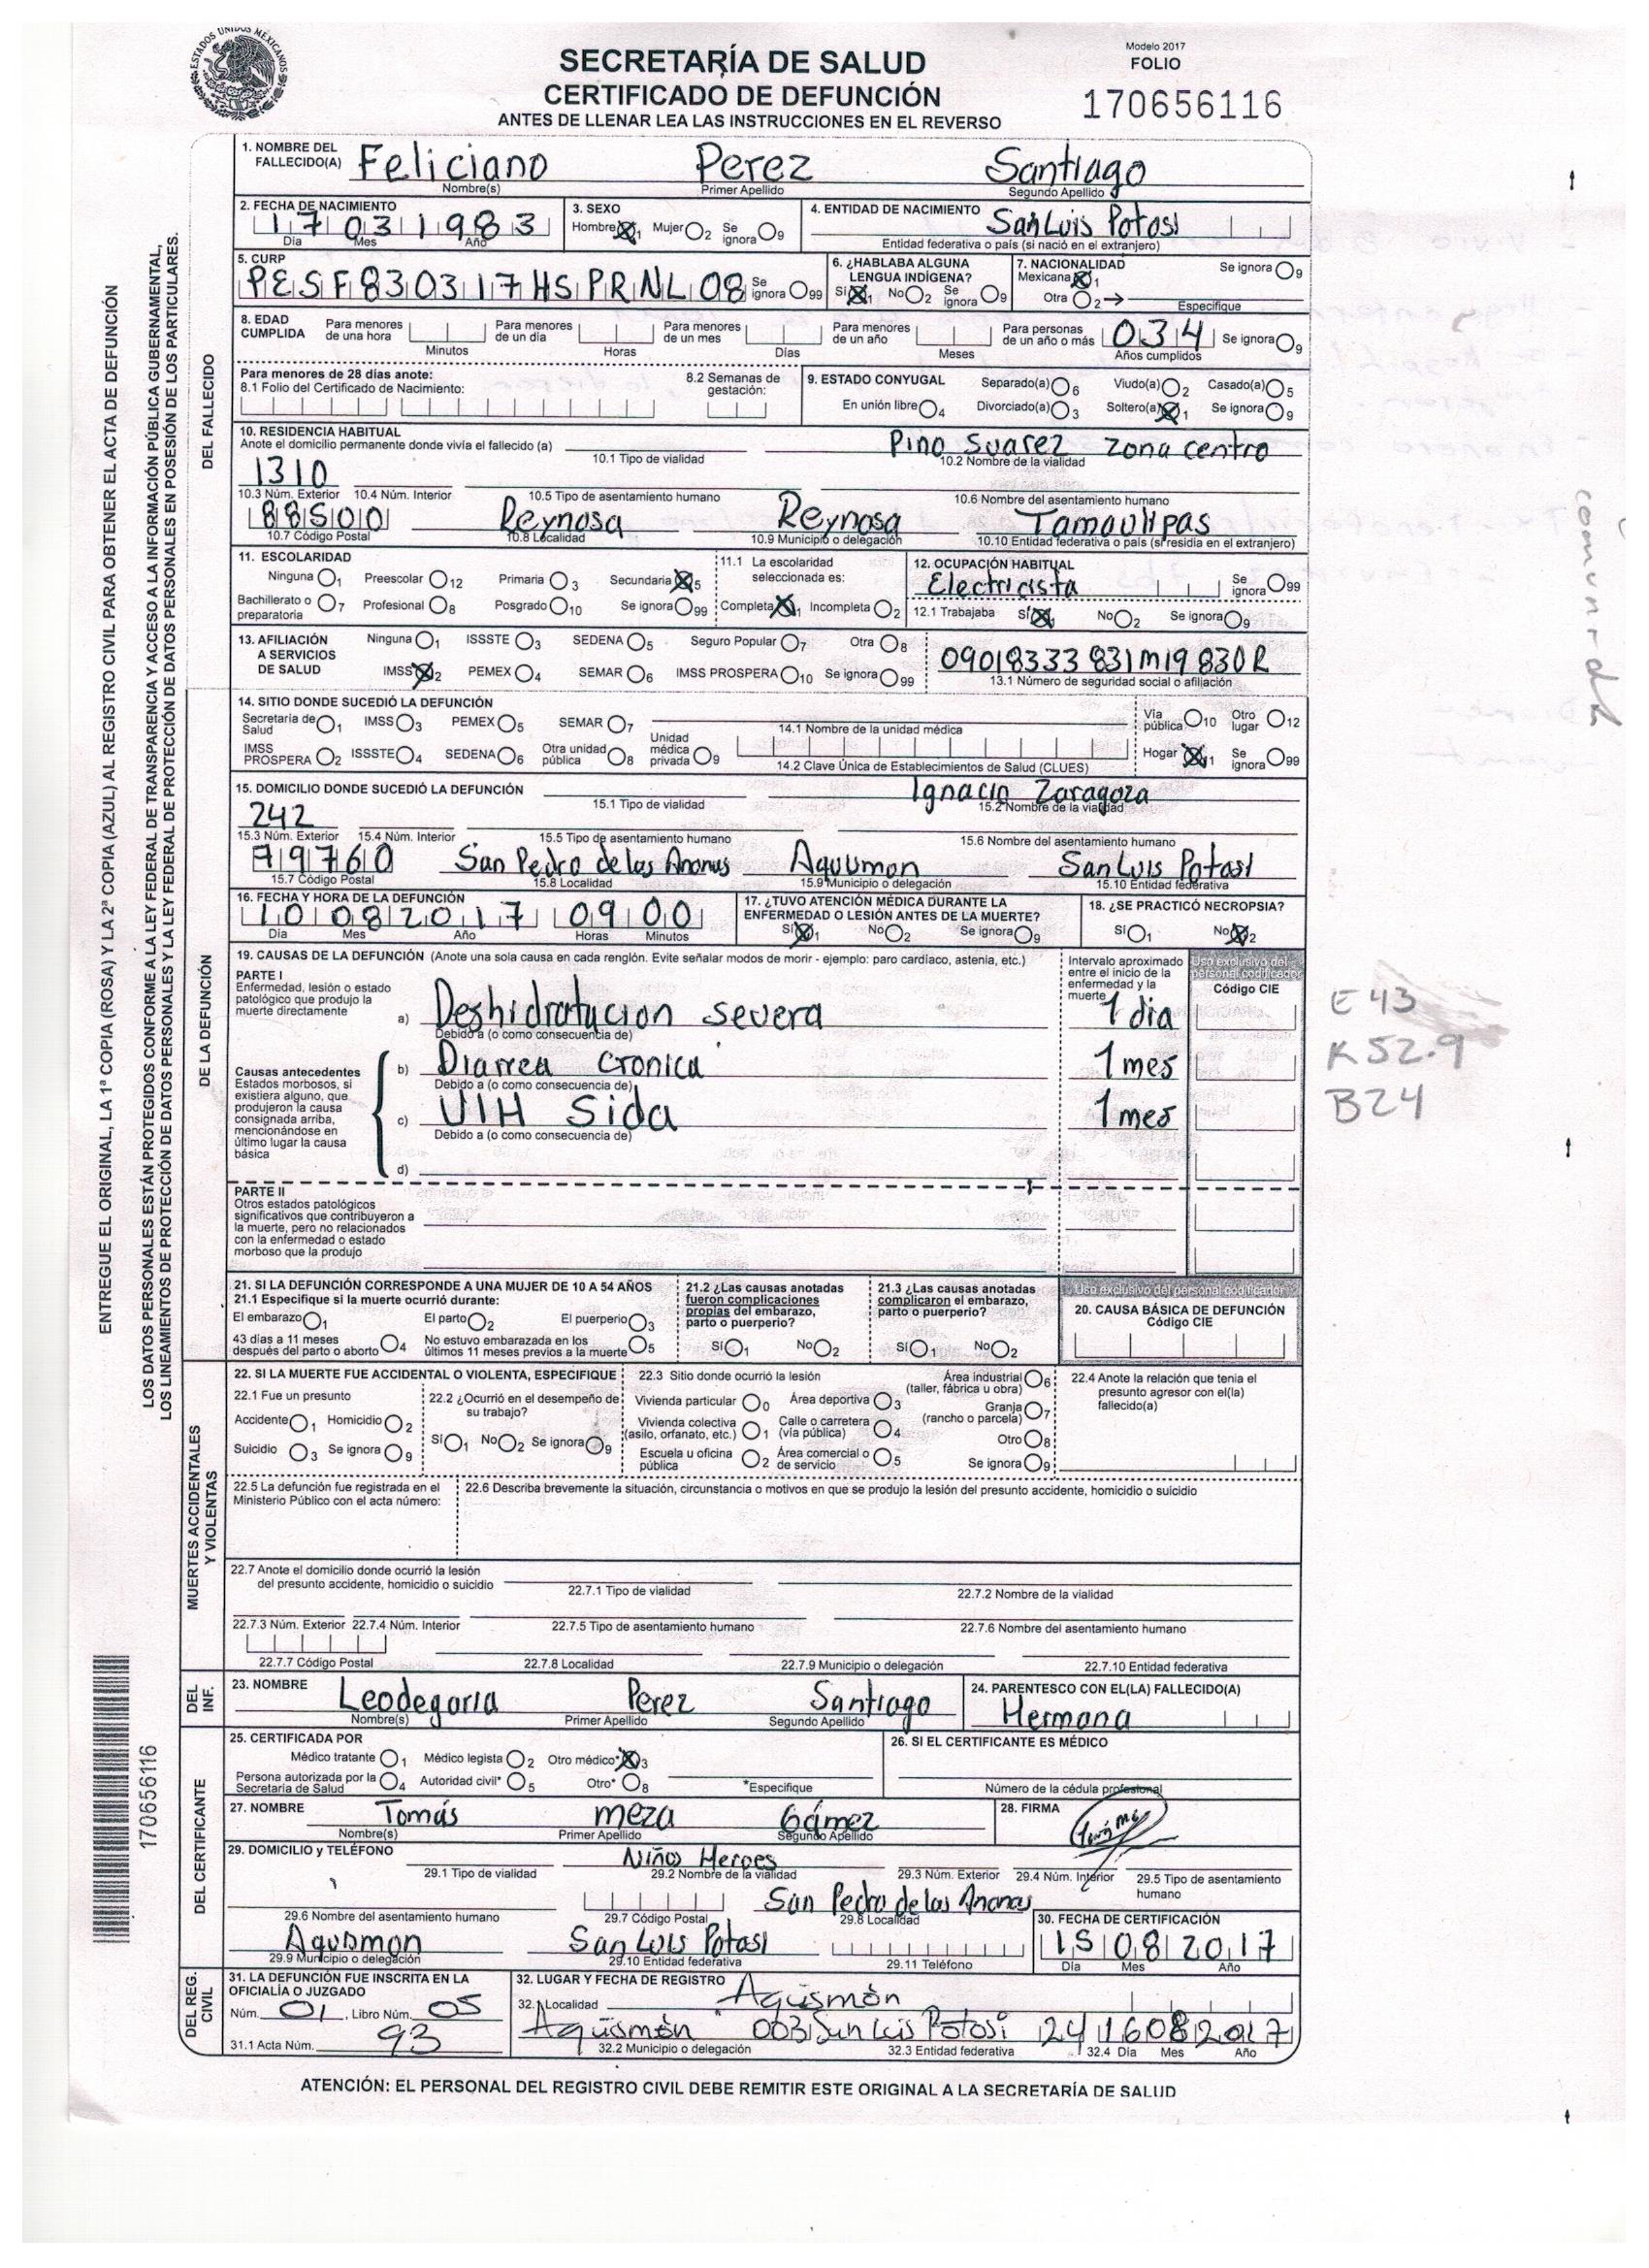 ESTADOS UNIDOS MEXICANOS
SECRETARÍA DE SALUD
CERTIFICADO DE DEFUNCIÓN
ANTES DE LLENAR LEA LAS INSTRUCCIONES EN EL REVERSO
Modelo 2017
FOLIO
170656116
ENTREGUE EL ORIGINAL, LA 1ª COPIA (ROSA) Y LA 2ª COPIA (AZUL) AL REGISTRO CIVIL PARA OBTENER EL ACTA DE DEFUNCIÓN
LOS DATOS PERSONALES ESTÁN PROTEGIDOS CONFORME A LA LEY FEDERAL DE TRANSPARENCIA Y ACCESO A LA INFORMACIÓN PÚBLICA GUBERNAMENTAL,
LOS LINEAMIENTOS DE PROTECCIÓN DE DATOS PERSONALES Y LA LEY FEDERAL DE PROTECCIÓN DE DATOS PERSONALES EN POSESIÓN DE LOS PARTICULARES.
DEL FALLECIDO
1. NOMBRE DEL FALLECIDO(A) Feliciano Perez Santiago
Nombre(s) Primer Apellido Segundo Apellido
2. FECHA DE NACIMIENTO 17 03 1983
Día Mes Año
3. SEXO
Hombre 1 Mujer 2 Se ignora 9
4. ENTIDAD DE NACIMIENTO San Luis Potosi
Entidad federativa o país (si nació en el extranjero)
5. CURP
PESF830317HSPRNL08 Se ignora 99
6. ¿HABLABA ALGUNA LENGUA INDÍGENA?
Sí 1 No 2 Se ignora 9
7. NACIONALIDAD Se ignora 9
Mexicana 1
Otra 2 Especifique
8. EDAD CUMPLIDA
Para menores de una hora Minutos
Para menores de un día Horas
Para menores de un mes Días
Para menores de un año Meses
Para personas de un año o más 034 Años cumplidos Se ignora 9
Para menores de 28 días anote:
8.1 Folio del Certificado de Nacimiento:
8.2 Semanas de gestación:
9. ESTADO CONYUGAL Separado(a) 6 Viudo(a) 2 Casado(a) 5
En unión libre 4 Divorciado(a) 3 Soltero(a) 1 Se ignora 9
10. RESIDENCIA HABITUAL
Anote el domicilio permanente donde vivía el fallecido (a) Pino Suarez zona centro
10.1 Tipo de vialidad 10.2 Nombre de la vialidad
1310
10.3 Núm. Exterior 10.4 Núm. Interior 10.5 Tipo de asentamiento humano 10.6 Nombre del asentamiento humano
88500 Reynosa Reynosa Tamaulipas
10.7 Código Postal 10.8 Localidad 10.9 Municipio o delegación 10.10 Entidad federativa o país (si residía en el extranjero)
11. ESCOLARIDAD
Ninguna 1 Preescolar 12 Primaria 3 Secundaria 5
Bachillerato o preparatoria 7 Profesional 8 Posgrado 10 Se ignora 99
11.1 La escolaridad seleccionada es:
Completa 1 Incompleta 2
12. OCUPACIÓN HABITUAL
Electricista Se ignora 99
12.1 Trabajaba Sí 1 No 2 Se ignora 9
13. AFILIACIÓN A SERVICIOS DE SALUD
Ninguna 1 ISSSTE 3 SEDENA 5 Seguro Popular 7 Otra 8
IMSS 2 PEMEX 4 SEMAR 6 IMSS PROSPERA 10 Se ignora 99
09018333831M19830R
13.1 Número de seguridad social o afiliación
DE LA DEFUNCIÓN
14. SITIO DONDE SUCEDIÓ LA DEFUNCIÓN
Secretaría de Salud 1 IMSS 3 PEMEX 5 SEMAR 7
14.1 Nombre de la unidad médica
Vía pública 10 Otro lugar 12
IMSS PROSPERA 2 ISSSTE 4 SEDENA 6 Otra unidad pública 8 Unidad médica privada 9
14.2 Clave Única de Establecimientos de Salud (CLUES)
Hogar 11 Se ignora 99
15. DOMICILIO DONDE SUCEDIÓ LA DEFUNCIÓN Ignacio Zaragoza
15.1 Tipo de vialidad 15.2 Nombre de la vialidad
242
15.3 Núm. Exterior 15.4 Núm. Interior 15.5 Tipo de asentamiento humano 15.6 Nombre del asentamiento humano
79760 San Pedro de las Anonas Aquismon San Luis Potosi
15.7 Código Postal 15.8 Localidad 15.9 Municipio o delegación 15.10 Entidad federativa
16. FECHA Y HORA DE LA DEFUNCIÓN
10 08 2017 09 00
Día Mes Año Horas Minutos
17. ¿TUVO ATENCIÓN MÉDICA DURANTE LA ENFERMEDAD O LESIÓN ANTES DE LA MUERTE?
Sí 1 No 2 Se ignora 9
18. ¿SE PRACTICÓ NECROPSIA?
Sí 1 No 2
19. CAUSAS DE LA DEFUNCIÓN (Anote una sola causa en cada renglón. Evite señalar modos de morir - ejemplo: paro cardíaco, astenia, etc.)
Intervalo aproximado entre el inicio de la enfermedad y la muerte
Uso exclusivo del personal codificador
Código CIE
PARTE I
Enfermedad, lesión o estado patológico que produjo la muerte directamente
a) Deshidratacion severa 1 dia
Debido a (o como consecuencia de)
b) Diarrea cronica 1 mes
Debido a (o como consecuencia de)
c) VIH Sida 1 mes
Debido a (o como consecuencia de)
d)
Causas antecedentes
Estados morbosos, si existiera alguno, que produjeron la causa consignada arriba, mencionándose en último lugar la causa básica
E43
K52.9
B24
PARTE II
Otros estados patológicos significativos que contribuyeron a la muerte, pero no relacionados con la enfermedad o estado morboso que la produjo
21. SI LA DEFUNCIÓN CORRESPONDE A UNA MUJER DE 10 A 54 AÑOS
21.1 Especifique si la muerte ocurrió durante:
El embarazo 1 El parto 2 El puerperio 3
43 días a 11 meses después del parto o aborto 4 No estuvo embarazada en los últimos 11 meses previos a la muerte 5
21.2 ¿Las causas anotadas fueron complicaciones propias del embarazo, parto o puerperio?
Sí 1 No 2
21.3 ¿Las causas anotadas complicaron el embarazo, parto o puerperio?
Sí 1 No 2
Uso exclusivo del personal codificador
20. CAUSA BÁSICA DE DEFUNCIÓN
Código CIE
MUERTES ACCIDENTALES Y VIOLENTAS
22. SI LA MUERTE FUE ACCIDENTAL O VIOLENTA, ESPECIFIQUE
22.1 Fue un presunto
Accidente 1 Homicidio 2
Suicidio 3 Se ignora 9
22.2 ¿Ocurrió en el desempeño de su trabajo?
Sí 1 No 2 Se ignora 9
22.3 Sitio donde ocurrió la lesión
Vivienda particular 0 Área deportiva 3 Área industrial (taller, fábrica u obra) 6
Vivienda colectiva (asilo, orfanato, etc.) 1 Calle o carretera (vía pública) 4 Granja (rancho o parcela) 7
Escuela u oficina pública 2 Área comercial o de servicio 5 Otro 8
Se ignora 9
22.4 Anote la relación que tenía el presunto agresor con el(la) fallecido(a)
22.5 La defunción fue registrada en el Ministerio Público con el acta número:
22.6 Describa brevemente la situación, circunstancia o motivos en que se produjo la lesión del presunto accidente, homicidio o suicidio
22.7 Anote el domicilio donde ocurrió la lesión del presunto accidente, homicidio o suicidio
22.7.1 Tipo de vialidad 22.7.2 Nombre de la vialidad
22.7.3 Núm. Exterior 22.7.4 Núm. Interior 22.7.5 Tipo de asentamiento humano 22.7.6 Nombre del asentamiento humano
22.7.7 Código Postal 22.7.8 Localidad 22.7.9 Municipio o delegación 22.7.10 Entidad federativa
DEL INF.
23. NOMBRE Leodegoria Perez Santiago
Nombre(s) Primer Apellido Segundo Apellido
24. PARENTESCO CON EL(LA) FALLECIDO(A)
Hermana
DEL CERTIFICANTE
25. CERTIFICADA POR
Médico tratante 1 Médico legista 2 Otro médico* 3
Persona autorizada por la Secretaría de Salud 4 Autoridad civil* 5 Otro* 8 *Especifique
26. SI EL CERTIFICANTE ES MÉDICO
Número de la cédula profesional
27. NOMBRE Tomás meza Gámez
Nombre(s) Primer Apellido Segundo Apellido
28. FIRMA
29. DOMICILIO y TELÉFONO Niños Heroes
29.1 Tipo de vialidad 29.2 Nombre de la vialidad 29.3 Núm. Exterior 29.4 Núm. Interior 29.5 Tipo de asentamiento humano
San Pedro de las Anonas
29.6 Nombre del asentamiento humano 29.7 Código Postal 29.8 Localidad
Aquismon San Luis Potosi
29.9 Municipio o delegación 29.10 Entidad federativa 29.11 Teléfono
30. FECHA DE CERTIFICACIÓN
15 08 2017
Día Mes Año
DEL REG. CIVIL
31. LA DEFUNCIÓN FUE INSCRITA EN LA OFICIALÍA O JUZGADO
Núm. 01, Libro Núm. 05
31.1 Acta Núm. 93
32. LUGAR Y FECHA DE REGISTRO
32.1 Localidad Aquismón
Aquismón 003 San Luis Potosí 24 16 08 2017
32.2 Municipio o delegación 32.3 Entidad federativa 32.4 Día Mes Año
170656116
ATENCIÓN: EL PERSONAL DEL REGISTRO CIVIL DEBE REMITIR ESTE ORIGINAL A LA SECRETARÍA DE SALUD